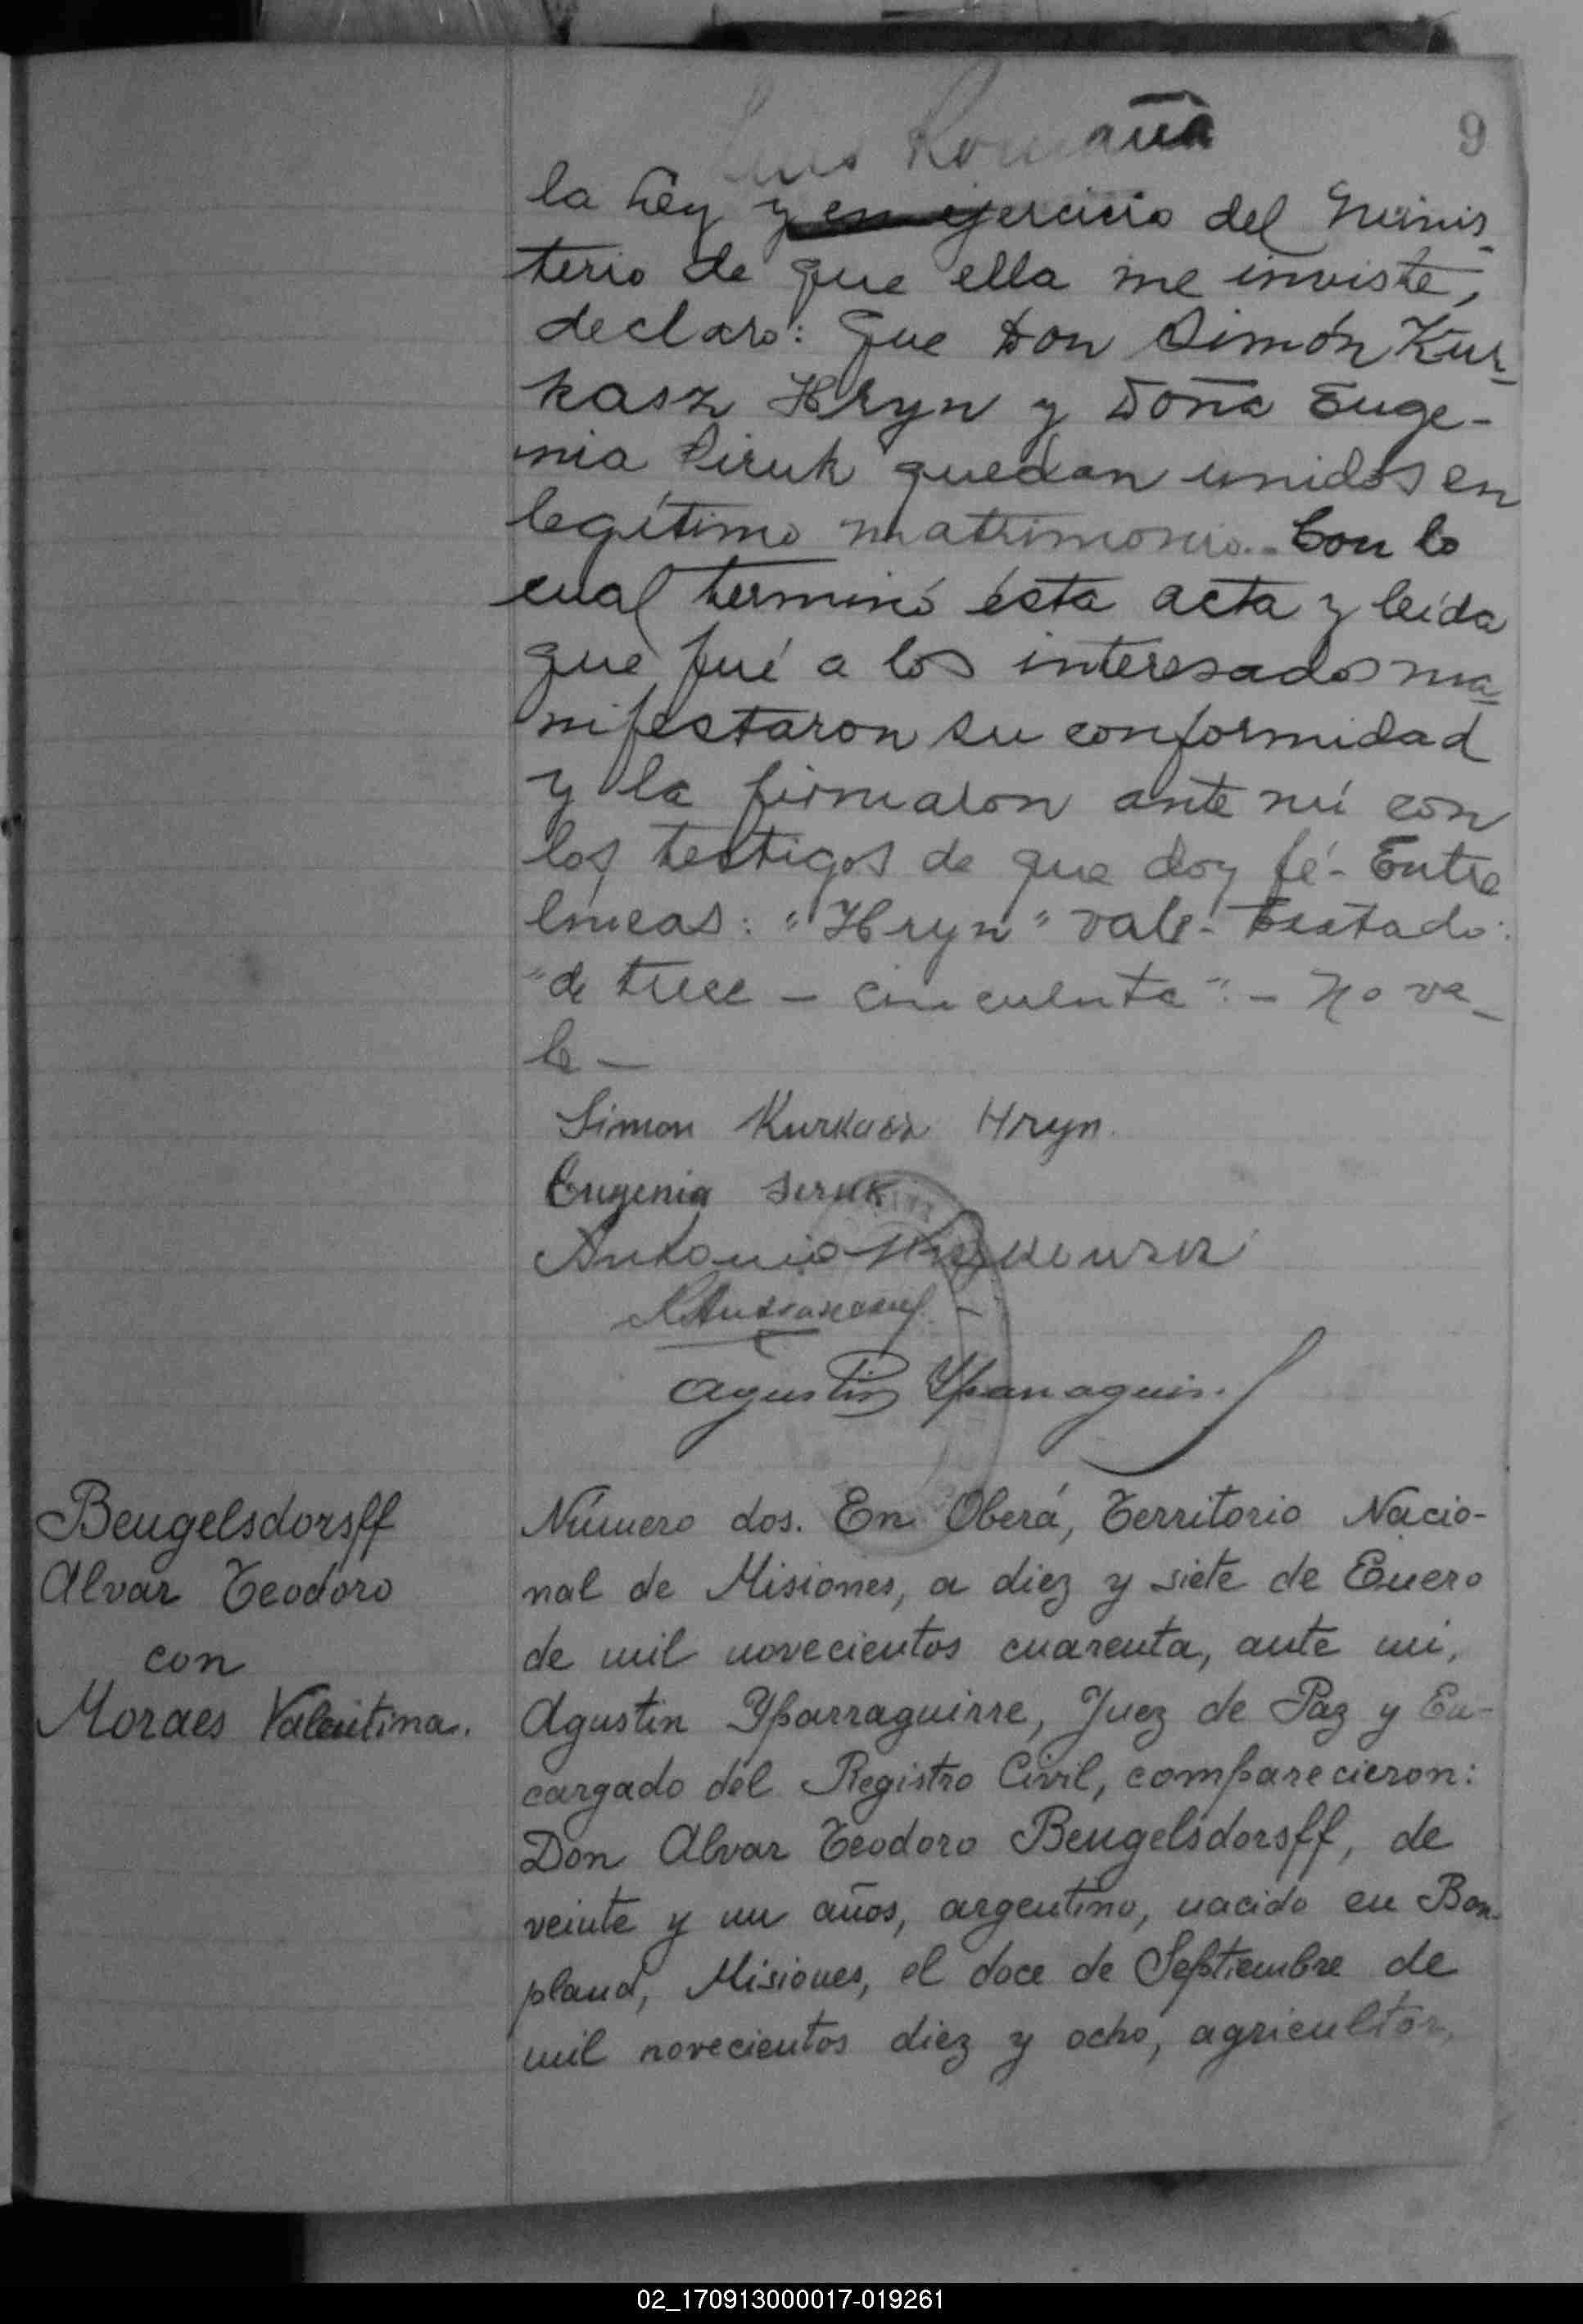 Luis Romaña
9
la Ley y en ejercicio del Minis-
terio de que ella me inviste,
declaro: Que Don Simón Kur-
kasz Hryn y Doña Euge-
nia Siruk quedan unidos en
legítimo matrimonio.- Con lo
cual terminó ésta acta y leída
que fué a los interesados ma-
nifestaron su conformidad
y la firmaron ante mí con
los testigos de que doy fé- Entre
líneas: "Hryn" vale- Testado:
"de trece - cincuenta".- No va-
le -
Simon Kurkasz Hryn.
Eugenia Siruk
Antonio
Agustin Yparraguirre
Beugelsdorsff
Alvar Teodoro
con
Moraes Valentina.
Número dos. En Oberá, Territorio Nacio-
nal de Misiones, a diez y siete de Enero
de mil novecientos cuarenta, ante mi,
Agustin Yparraguirre, Juez de Paz y En-
cargado del Registro Civil, comparecieron:
Don Alvar Teodoro Beugelsdorsff, de
veinte y un años, argentino, nacido en Bon-
pland, Misiones, el doce de Septiembre de
mil novecientos diez y ocho, agricultor,
02_170913000017-019261